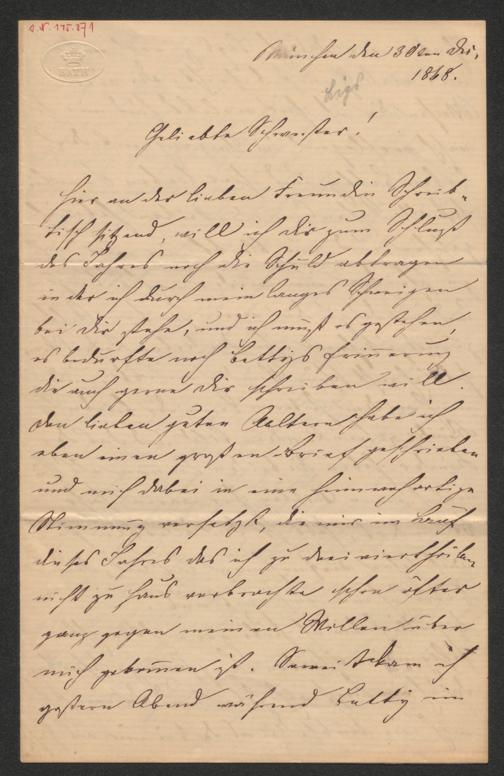 a. N. 115.871
BATH
München den 30ten Dez.
1868.
Geliebte Schwester!
Hier an der lieben Freundin Schreib-
tisch sitzend, will ich dir zum Schluß
des Jahres noch die Schuld abtragen
in der ich durch mein langes Schweigen
bei dir stehe, und ich muß es gestehen,
es bedurfte noch Bettys Erinnerung
die auch gerne dir schreiben will.
Den lieben guten Aeltern habe ich
eben einen großen Brief geschrieben
und mich dabei in eine heimwehartige
Stimmung versetzt, die mir im Lauf
dieses Jahres das ich zu dreiviertheilen
nicht zu Haus verbrachte schon öfter
ganz gegen meinen Willen über
mich gekommen ist. Soweit kam ich
gestern Abend während Betty im